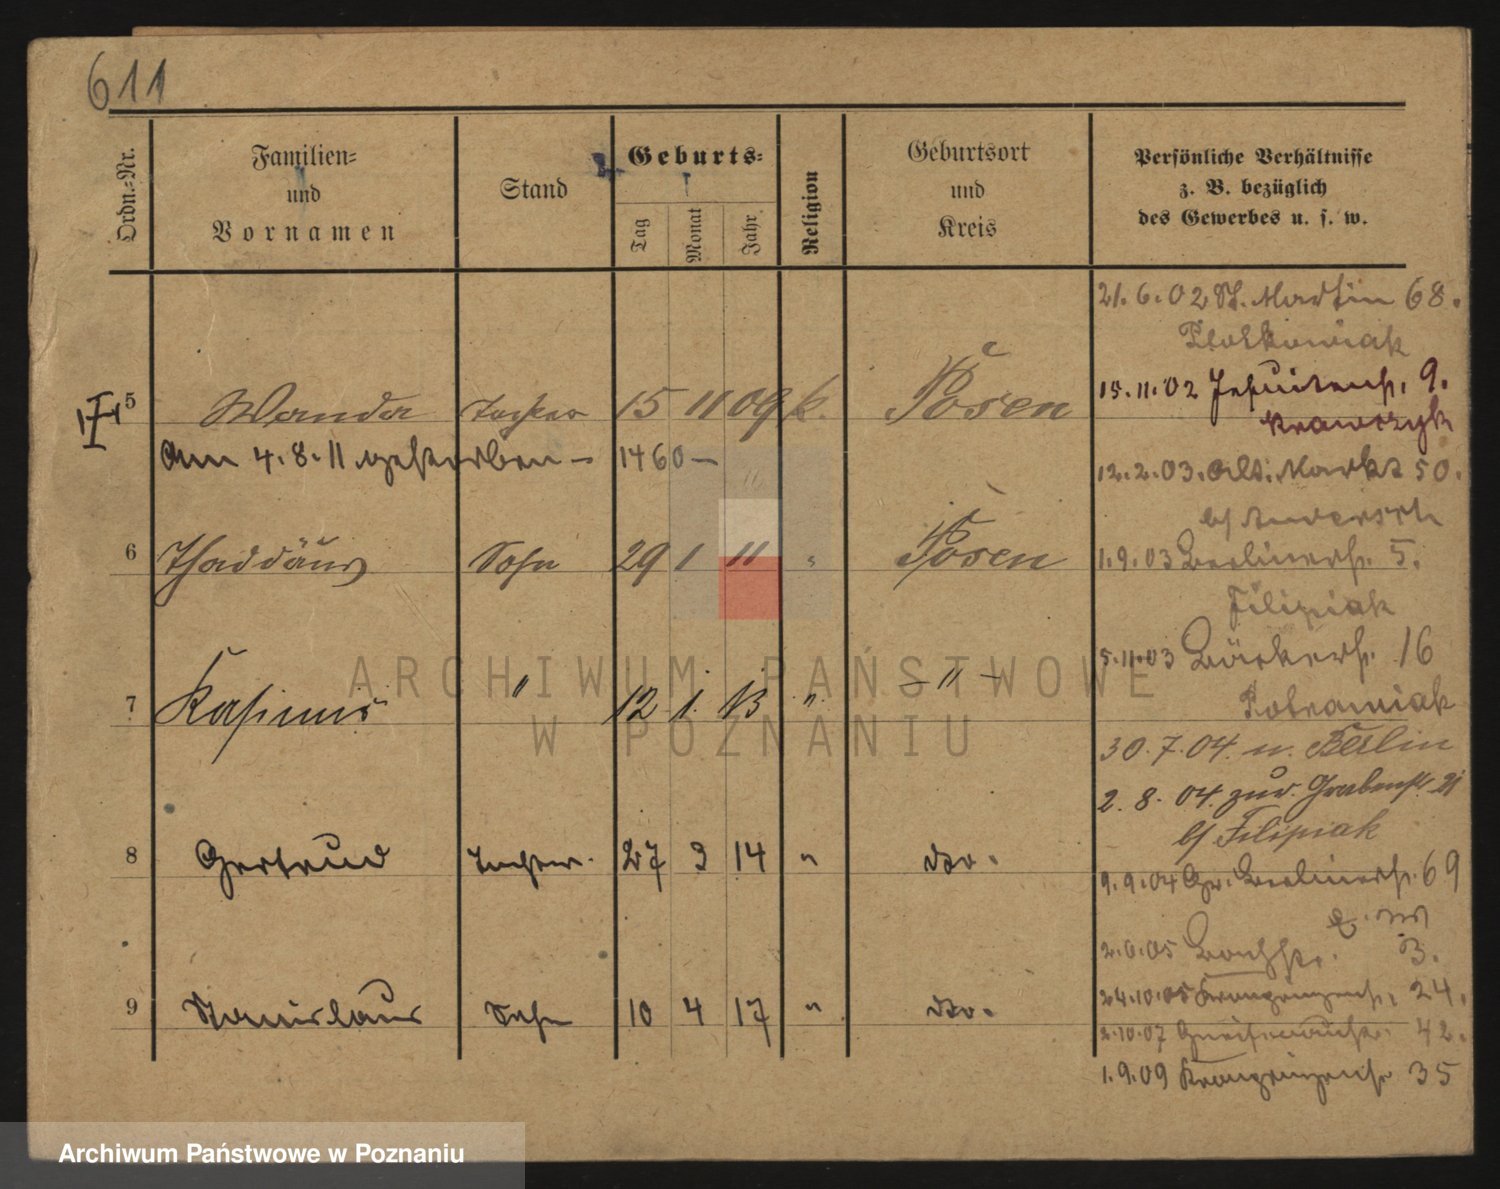 611
Ordn.-Nr.
Familien-
und
Vornamen
Stand
Geburts-
Tag
Monat
Jahr
Religion
Geburtsort
und
Kreis
Persönliche Verhältnisse
z. B. bezüglich
des Gewerbes u. s. w.
5 Wanda Tochter 15 11 09 k. Posen
Am 4.8.11 gestorben – 1460 –
6 Thaddäus Sohn 29 1 11 " Posen
7 Kasimir " 12 1. 13 " – " –
8 Gertrud Tochter. 27 3 14 " dto.
9 Stanislaus Sohn 10 4 17 " dto.
21.6.02 St. Martin 68.
15.11.02 Jesuitenstr. 9.
Krawczyk
12.2.03. Alt. Markt 50.
1.9.03 Berlinerstr. 5.
Filipiak
5.11.03 Bäckerstr. 16
30.7.04. n. Berlin
2.8.04. zur. Grabenstr. 21
b/ Filipiak
9.9.04 Gr. Berlinerstr. 69
3.
24.10.05 Kronprinzenstr. 24.
2.10.07 42.
1.9.09 Kronprinzenstr 35
ARCHIWUM PAŃSTWOWE
W POZNANIU
Archiwum Państwowe w Poznaniu